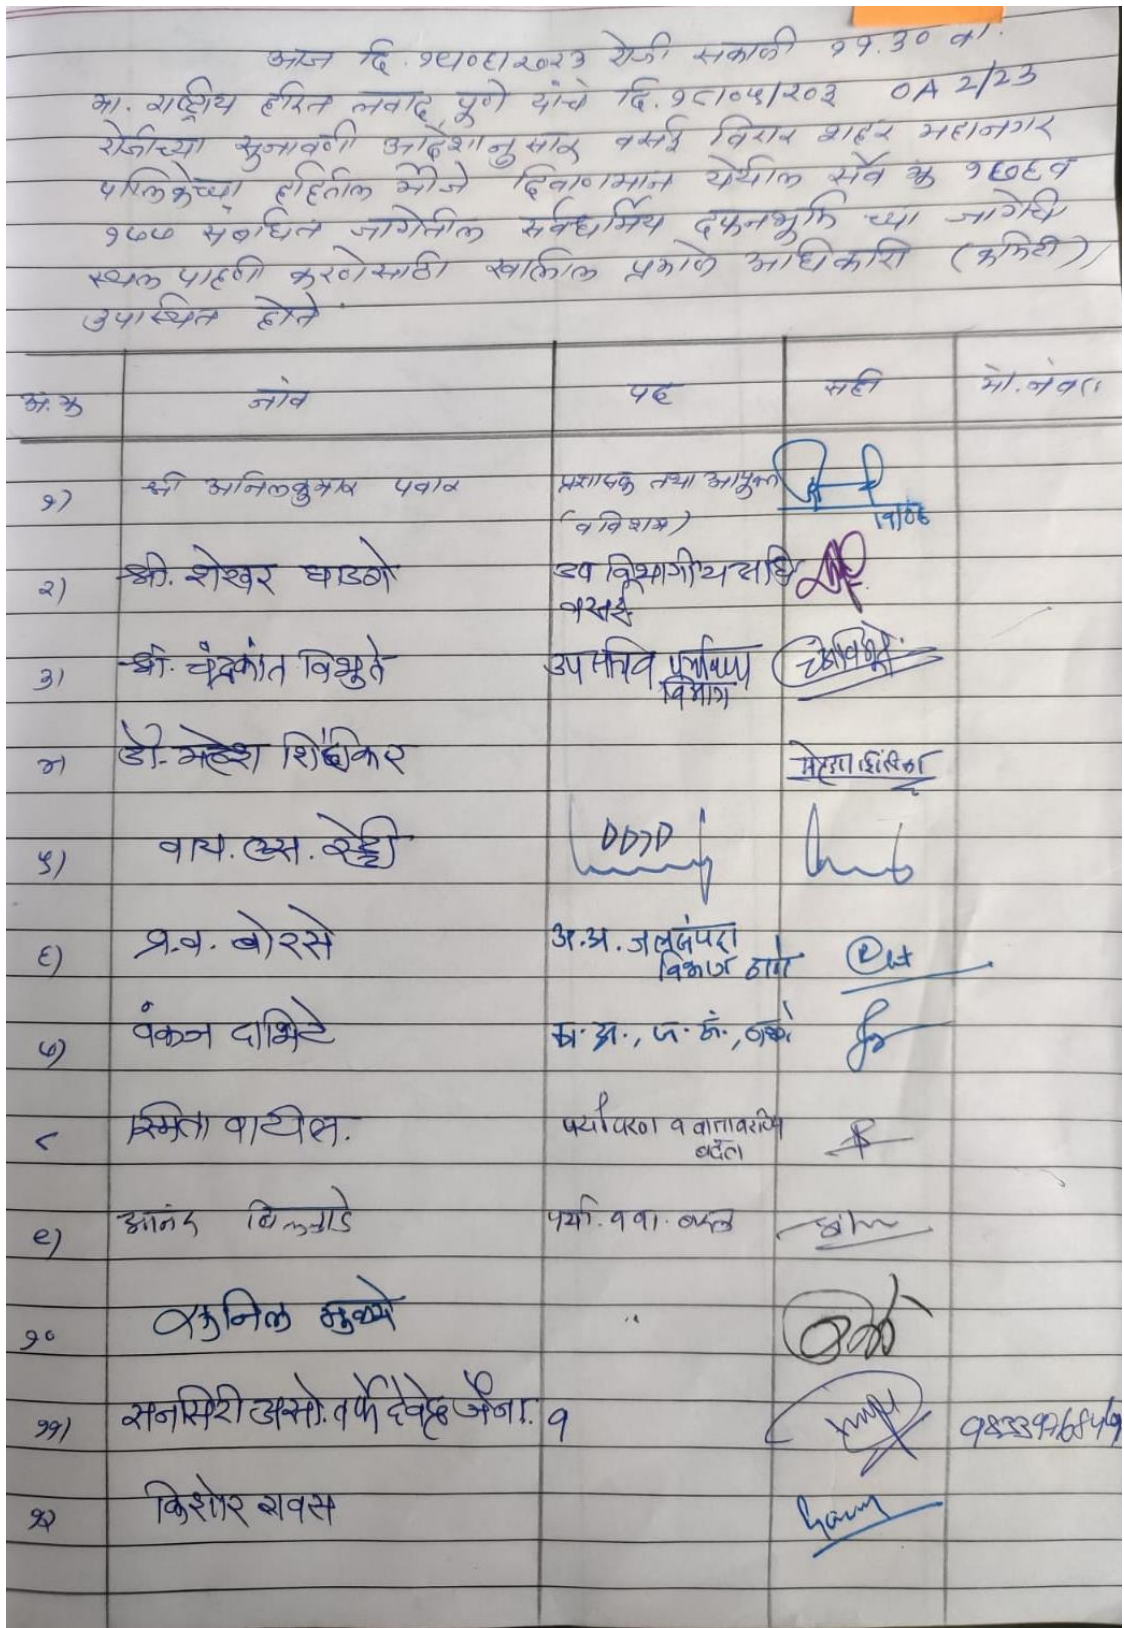 आज दि. १९/०६/२०२३ रोजी सकाळी ११.३० वा.
मा. राष्ट्रीय हरित लवाद, पुणे यांचे दि. १८/०५/२०३ OA 2/23
रोजीच्या सुनावणी आदेशानुसार वसई विरार शहर महानगर
पालिकेच्या हद्दितील मौजे दिवाणमान येथील सर्वे क्र १७६ व
१७७ संबंधित जागेतील सर्वधर्मिय दफनभूमि च्या जागेची
स्थळ पाहणी करणेसाठी खालील प्रमाणे अधिकारी (कमिटी)
उपस्थित होते
अ.क्र नांव पद सही मो.नंबर
१) श्री अनिलकुमार पवार प्रशासक तथा आयुक्त
(व वि श म) १९/०६
२) श्री. शेखर घाडगे उप विभागीय अधि
वसई
३) श्री. चंद्रकांत विभुते उपसचिव पर्यावरण
विभाग
४) डॉ. महेश शिंदीकर
५) वाय. एस. रेड्डी DDTP
६) प्र.व. बोरसे अ.अ. जलसंपदा
विभाग ठाणे
७) पंकज दाभिटे
८ स्मिता पाटील. पर्यावरण व वातावरणीय
बदल
९) आनंद पर्या. व वा. बदल
१० सुनिल मुळ्ये "
११) सनसिटी असो. तर्फे देवेंद्र जैना. १
१२ किशोर रावस